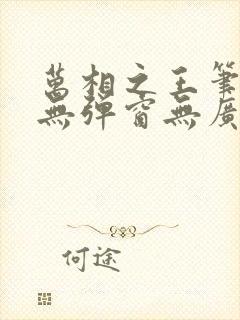 萬相之王筆
無彈窗無廣
何途